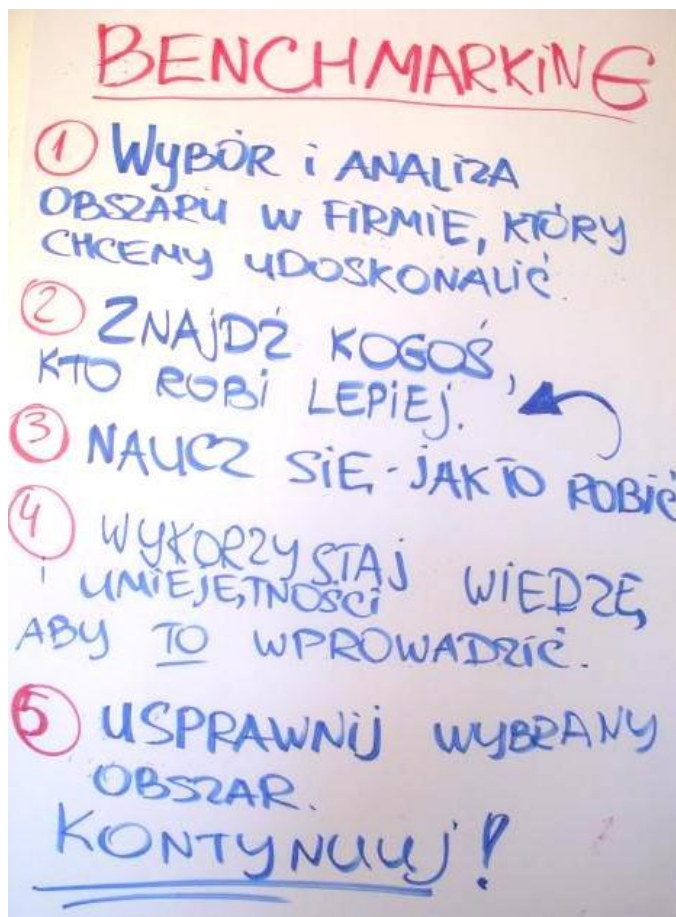 BENCHMARKING
① WYBÓR i ANALIZA
OBSZARU W FIRMIE, KTÓRY
CHCEMY UDOSKONALIĆ.
② ZNAJDŹ KOGOŚ,
KTO ROBI LEPIEJ.
③ NAUCZ SIĘ - JAK TO ROBIĆ
④ WYKORZYSTAJ WIEDZĘ
i UMIEJĘTNOŚCI
ABY TO WPROWADZIĆ.
⑤ USPRAWNIJ WYBRANY
OBSZAR.
KONTYNUUJ!